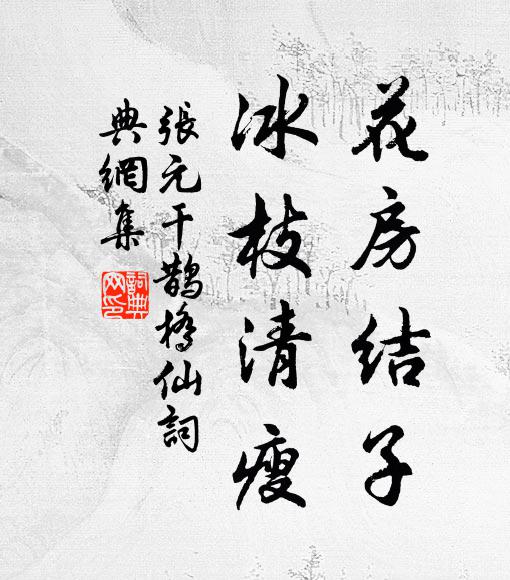 花房结子
冰枝清瘦
張元干鹊橋仙詞
典網集
詞典
网印